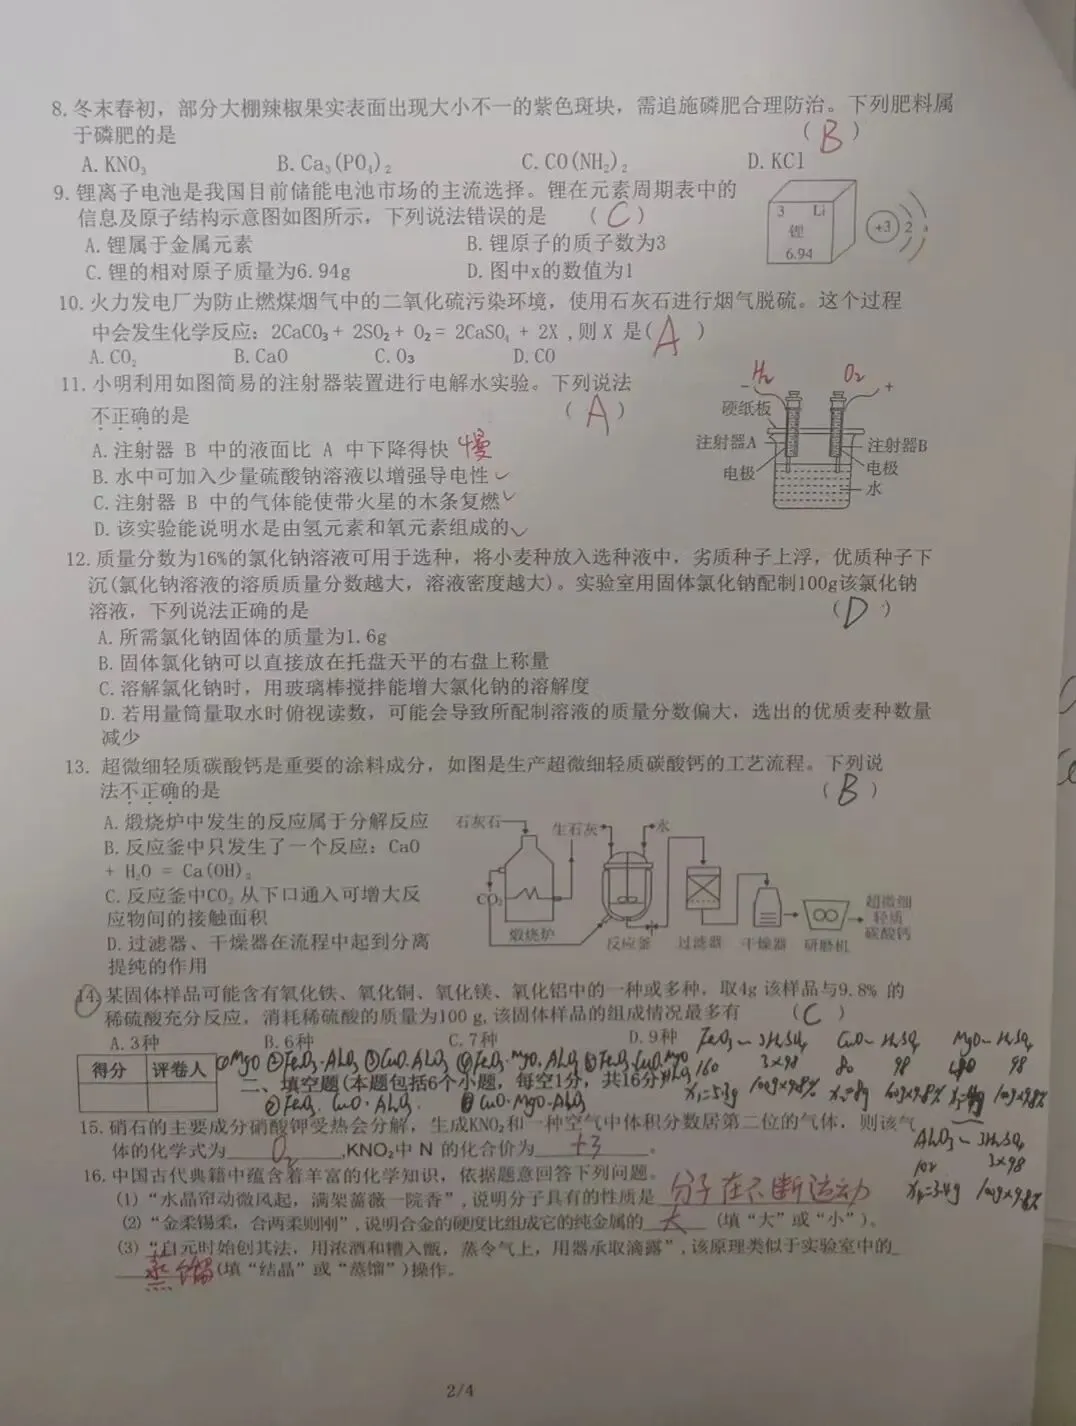 8.冬末春初，部分大棚辣椒果实表面出现大小不一的紫色斑块，需追施磷肥合理防治。下列肥料属
于磷肥的是 （ B ）
A.KNO₃ B.Ca₃(PO₄)₂ C.CO(NH₂)₂ D.KCl
9.锂离子电池是我国目前储能电池市场的主流选择。锂在元素周期表中的
信息及原子结构示意图如图所示，下列说法错误的是 （ C ）
3 Li
锂
6.94
+3 2
A.锂属于金属元素 B.锂原子的质子数为3
C.锂的相对原子质量为6.94g D.图中x的数值为1
10.火力发电厂为防止燃煤烟气中的二氧化硫污染环境，使用石灰石进行烟气脱硫。这个过程
中会发生化学反应：2CaCO₃+ 2SO₂+ O₂= 2CaSO₄ + 2X ,则 X 是( A )
A.CO₂ B.CaO C.O₃ D.CO
11.小明利用如图简易的注射器装置进行电解水实验。下列说法
不正确的是 （ A ）
H₂ O₂
- +
硬纸板
注射器A 注射器B
电极 电极
水
A.注射器 B 中的液面比 A 中下降得快 慢
B.水中可加入少量硫酸钠溶液以增强导电性 ✓
C.注射器 B 中的气体能使带火星的木条复燃 ✓
D.该实验能说明水是由氢元素和氧元素组成的 ✓
12.质量分数为16%的氯化钠溶液可用于选种，将小麦种放入选种液中，劣质种子上浮，优质种子下
沉(氯化钠溶液的溶质质量分数越大，溶液密度越大)。实验室用固体氯化钠配制100g该氯化钠
溶液，下列说法正确的是 （ D ）
A.所需氯化钠固体的质量为1.6g
B.固体氯化钠可以直接放在托盘天平的右盘上称量
C.溶解氯化钠时，用玻璃棒搅拌能增大氯化钠的溶解度
D.若用量筒量取水时俯视读数，可能会导致所配制溶液的质量分数偏大，选出的优质麦种数量
减少
13. 超微细轻质碳酸钙是重要的涂料成分，如图是生产超微细轻质碳酸钙的工艺流程。下列说
法不正确的是 （ B ）
A.煅烧炉中发生的反应属于分解反应
B.反应釜中只发生了一个反应：CaO
+ H₂O = Ca(OH)₂
C.反应釜中CO₂ 从下口通入可增大反
应物间的接触面积
D.过滤器、干燥器在流程中起到分离
提纯的作用
石灰石 生石灰 水
CO₂ 超微细
轻质
碳酸钙
煅烧炉 反应釜 过滤器 干燥器 研磨机
14.某固体样品可能含有氧化铁、氧化铜、氧化镁、氧化铝中的一种或多种，取4g 该样品与9.8% 的
稀硫酸充分反应，消耗稀硫酸的质量为100 g,该固体样品的组成情况最多有 （ C ）
A.3种 B.6种 C.7种 D.9种
①MgO ②Fe₂O₃·Al₂O₃ ③CuO·Al₂O₃ ④Fe₂O₃·MgO·Al₂O₃ ⑤Fe₂O₃·CuO·MgO
·Al₂O₃
Fe₂O₃ ~ 3H₂SO₄ CuO ~ H₂SO₄ MgO ~ H₂SO₄
160 3×98 80 98 40 98
x₁=5.3g 100g×9.8% x₂=8g 100g×9.8% x₃=4g 100g×9.8%
得分 评卷人
二、填空题(本题包括6个小题，每空1分，共16分)
Fe₂O₃·CuO·Al₂O₃ CuO·MgO·Al₂O₃
15.硝石的主要成分硝酸钾受热会分解，生成KNO₂和一种空气中体积分数居第二位的气体，则该气
体的化学式为 O₂ ,KNO₂中 N 的化合价为 +3 。
Al₂O₃ ~ 3H₂SO₄
102 3×98
x₄=3.4g 100g×9.8%
16.中国古代典籍中蕴含着丰富的化学知识，依据题意回答下列问题。
(1) “水晶帘动微风起，满架蔷薇一院香”,说明分子具有的性质是 分子在不断运动
(2) “金柔锡柔，合两柔则刚”,说明合金的硬度比组成它的纯金属的 大 (填“大”或“小”)。
(3) “自元时始创其法，用浓酒和糟入甑，蒸令气上，用器承取滴露”,该原理类似于实验室中的
蒸馏 (填“结晶”或“蒸馏”)操作。
2/4